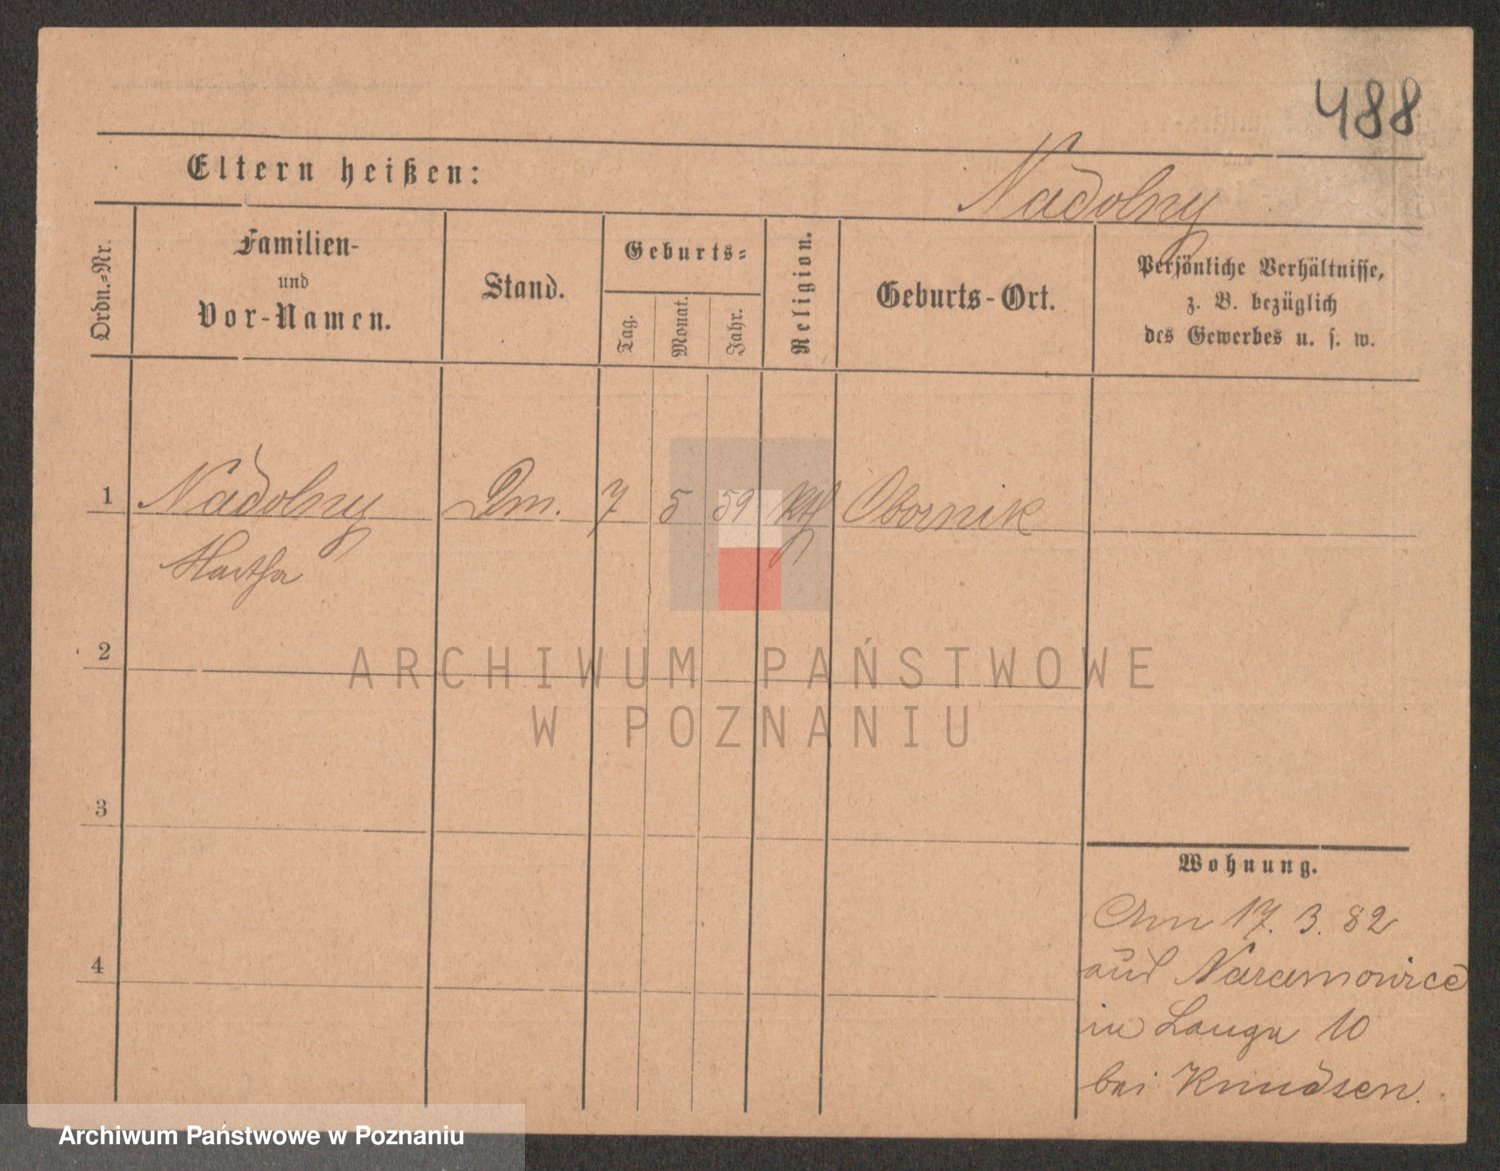 488
Eltern heißen:
Nadolny
Ordn.-Nr.
Familien-
und
Vor-Namen.
Stand.
Geburts-
Tag.
Monat.
Jahr.
Religion.
Geburts-Ort.
Persönliche Verhältnisse,
z. B. bezüglich
des Gewerbes u. s. w.
1 Nadolny Dm. 7 5 59 kth Obornik
Martha
2
ARCHIWUM PAŃSTWOWE
W POZNANIU
3
Wohnung.
Am 17. 3. 82
4
aus Naramowice
in Lange 10
bei Knudsen.
Archiwum Państwowe w Poznaniu